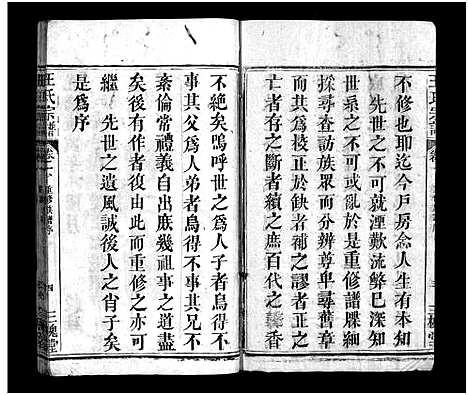 不修也比比矣今戶房念人生有本知
先世之不可就湮歎流弊已深知
世系之不可以弗辨於是重修譜牒細
探尋查訪族眾而分辨尊卑舊章
失者有之正於缺者補之謬者正之
亡者存之斷者續之庶百代之馨香
不絕矣嗚呼世之為人子者烏得不
事其父為人弟者烏得不事其兄不
紊倫常禮義自出庶幾祖事之道盡
矣後有作者復由而重修之亦可
繼 先世之遺風誠後人之肖子矣
是為序
王氏宗譜
卷之首 重修族譜序
四 三槐堂